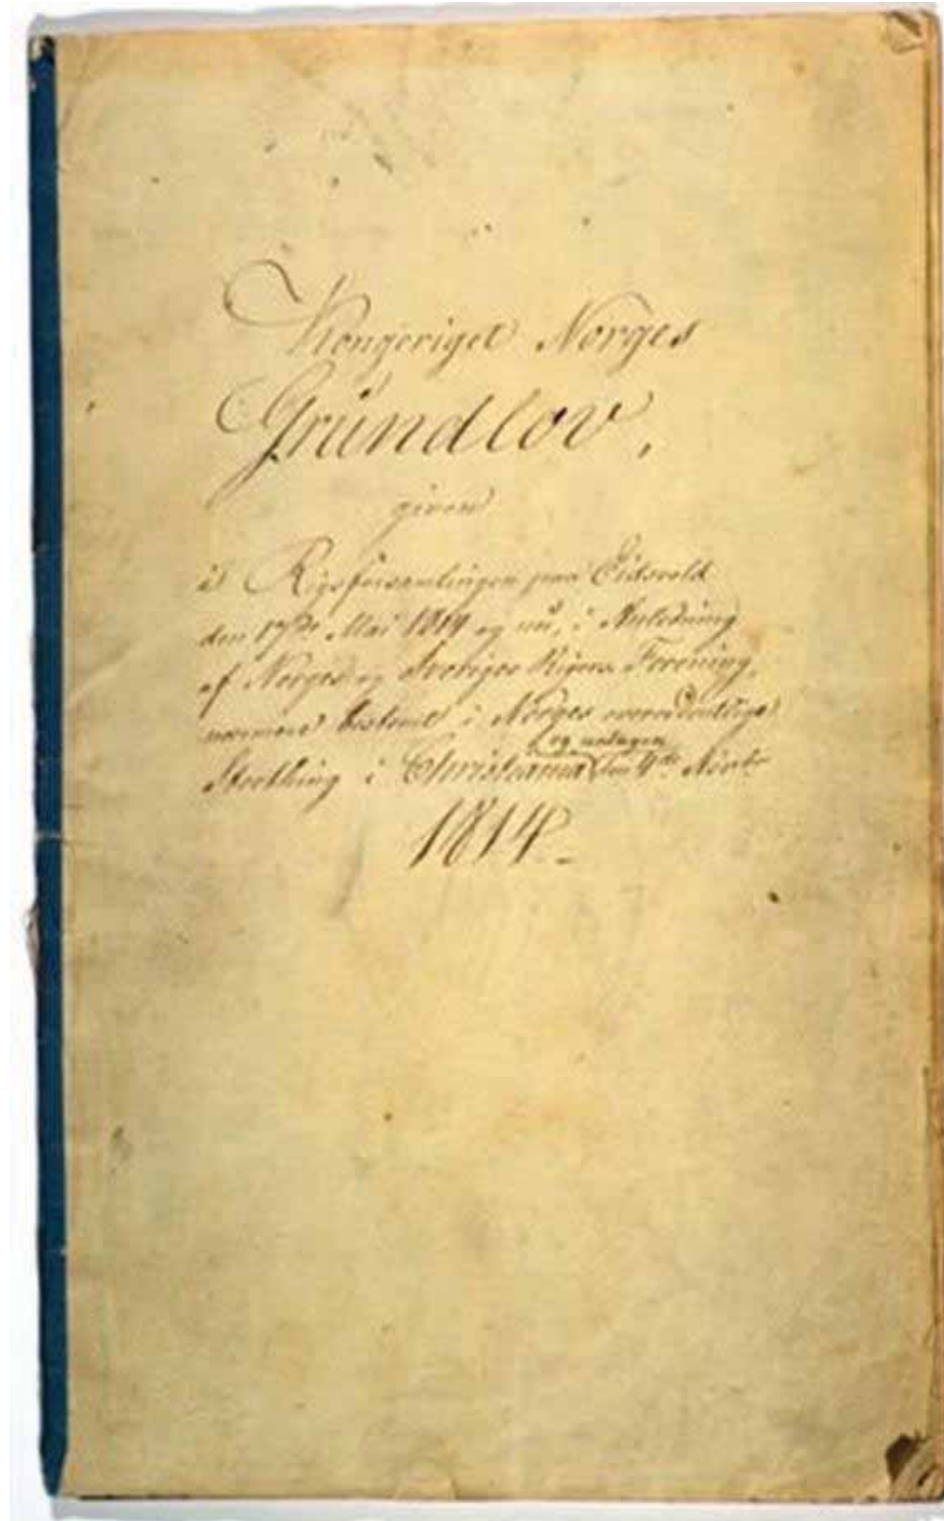 Kongeriget Norges
Grundlov,
given
i Rigsforsamlingen paa Eidsvold
den 17de Mai 1814 og nu, i Anledning
af Norges og Sveriges Rigers Forening,
nærmere bestemt i Norges overordentlige
og antagen
Storthing i Christiania den 4de Novbr
1814_